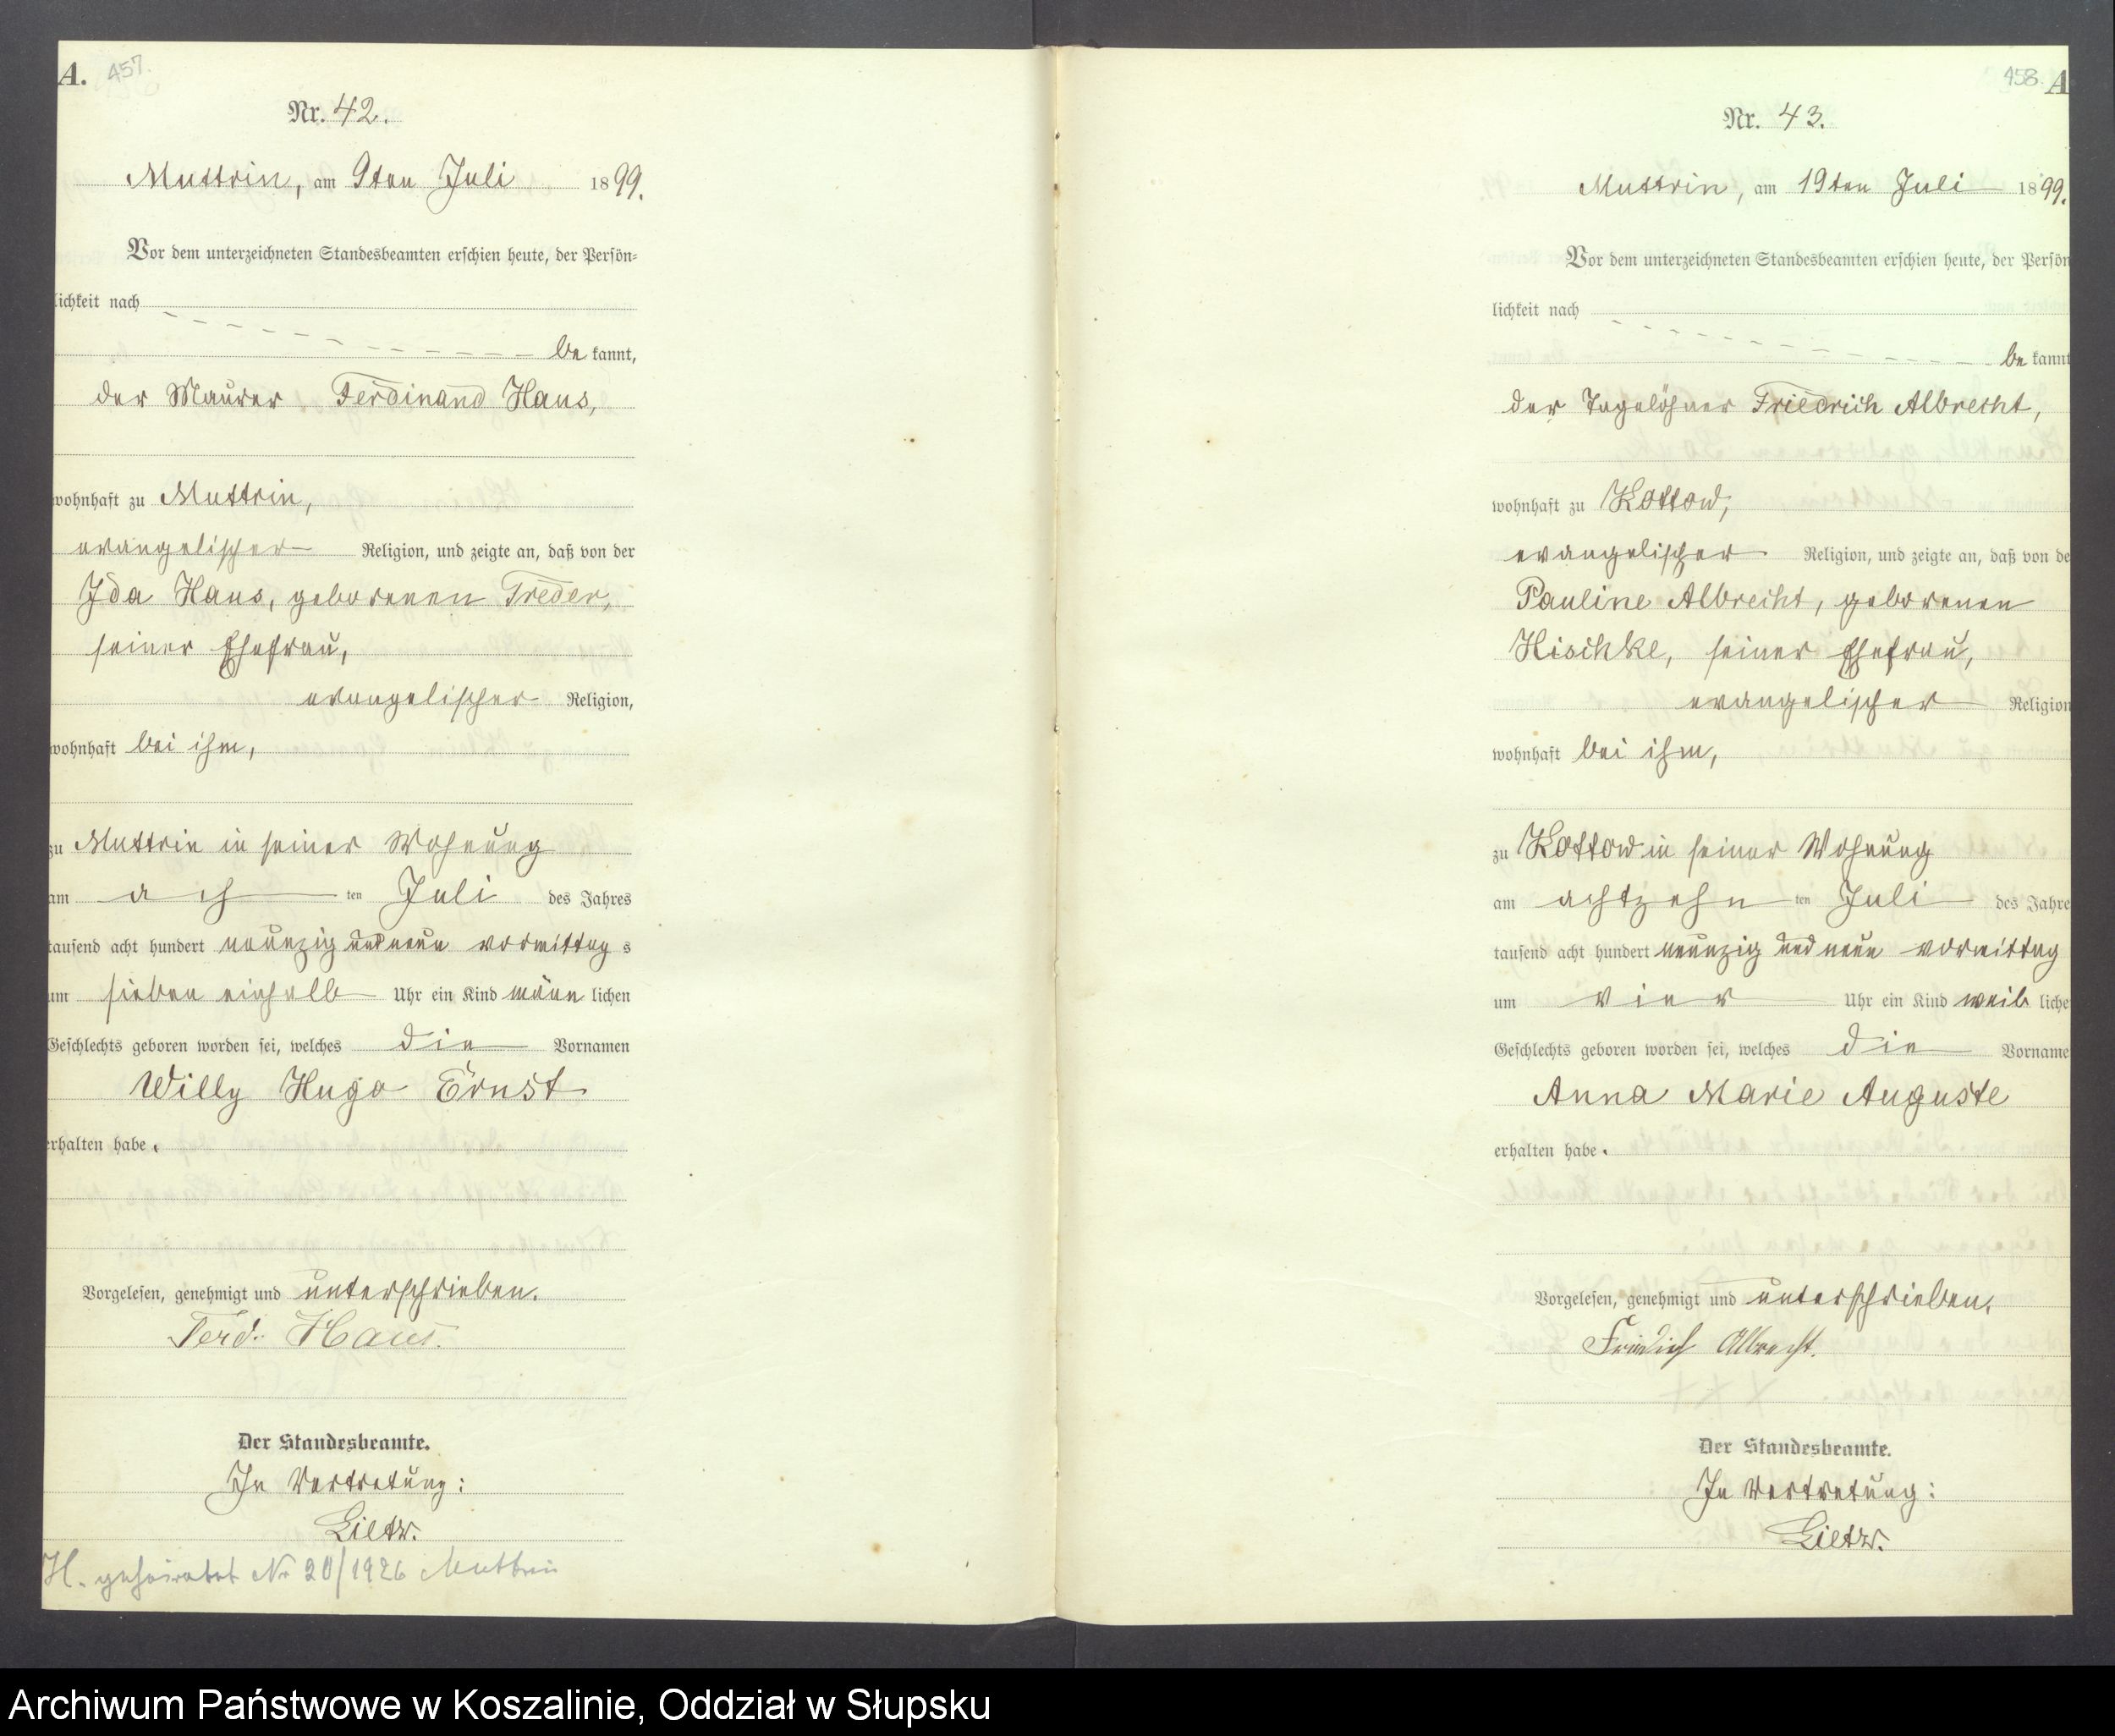 A. 457.
Nr. 42.
Muttrin, am 9ten Juli 1899.
Vor dem unterzeichneten Standesbeamten erschien heute, der Persön-
lichkeit nach
be kannt,
der Maurer Ferdinand Haus,
wohnhaft zu Muttrin,
evangelischer Religion, und zeigte an, daß von der
Ida Haus, geborenen Treder,
seiner Ehefrau,
evangelischer Religion,
wohnhaft bei ihm,
zu Muttrin in seiner Wohnung
am ach ten Juli des Jahres
tausend acht hundert neunzig und neun vormittag s
um sieben einhalb Uhr ein Kind männ lichen
Geschlechts geboren worden sei, welches die Vornamen
Willy Hugo Ernst
erhalten habe.
Vorgelesen, genehmigt und unterschrieben.
Ferd. Haus.
Der Standesbeamte.
In Vertretung:
Lietz.
H. geheiratet Nr 20/1926 Muttrin
458. A
Nr. 43.
Muttrin, am 19ten Juli 1899.
Vor dem unterzeichneten Standesbeamten erschien heute, der Persön
lichkeit nach
be kannt
der Tagelöhner Friedrich Albrecht,
wohnhaft zu Kottow,
evangelischer Religion, und zeigte an, daß von de
Pauline Albrecht, geborenen
Hischke, seiner Ehefrau,
evangelischer Religion
wohnhaft bei ihm,
zu Kottow in seiner Wohnung
am achtzehn ten Juli des Jahre
tausend acht hundert neunzig und neun vormittag
um vier Uhr ein Kind weib liche
Geschlechts geboren worden sei, welches die Vorname
Anna Marie Auguste
erhalten habe.
Vorgelesen, genehmigt und unterschrieben.
Friedrich Albrecht.
Der Standesbeamte.
In Vertretung:
Lietz.
Archiwum Państwowe w Koszalinie, Oddział w Słupsku